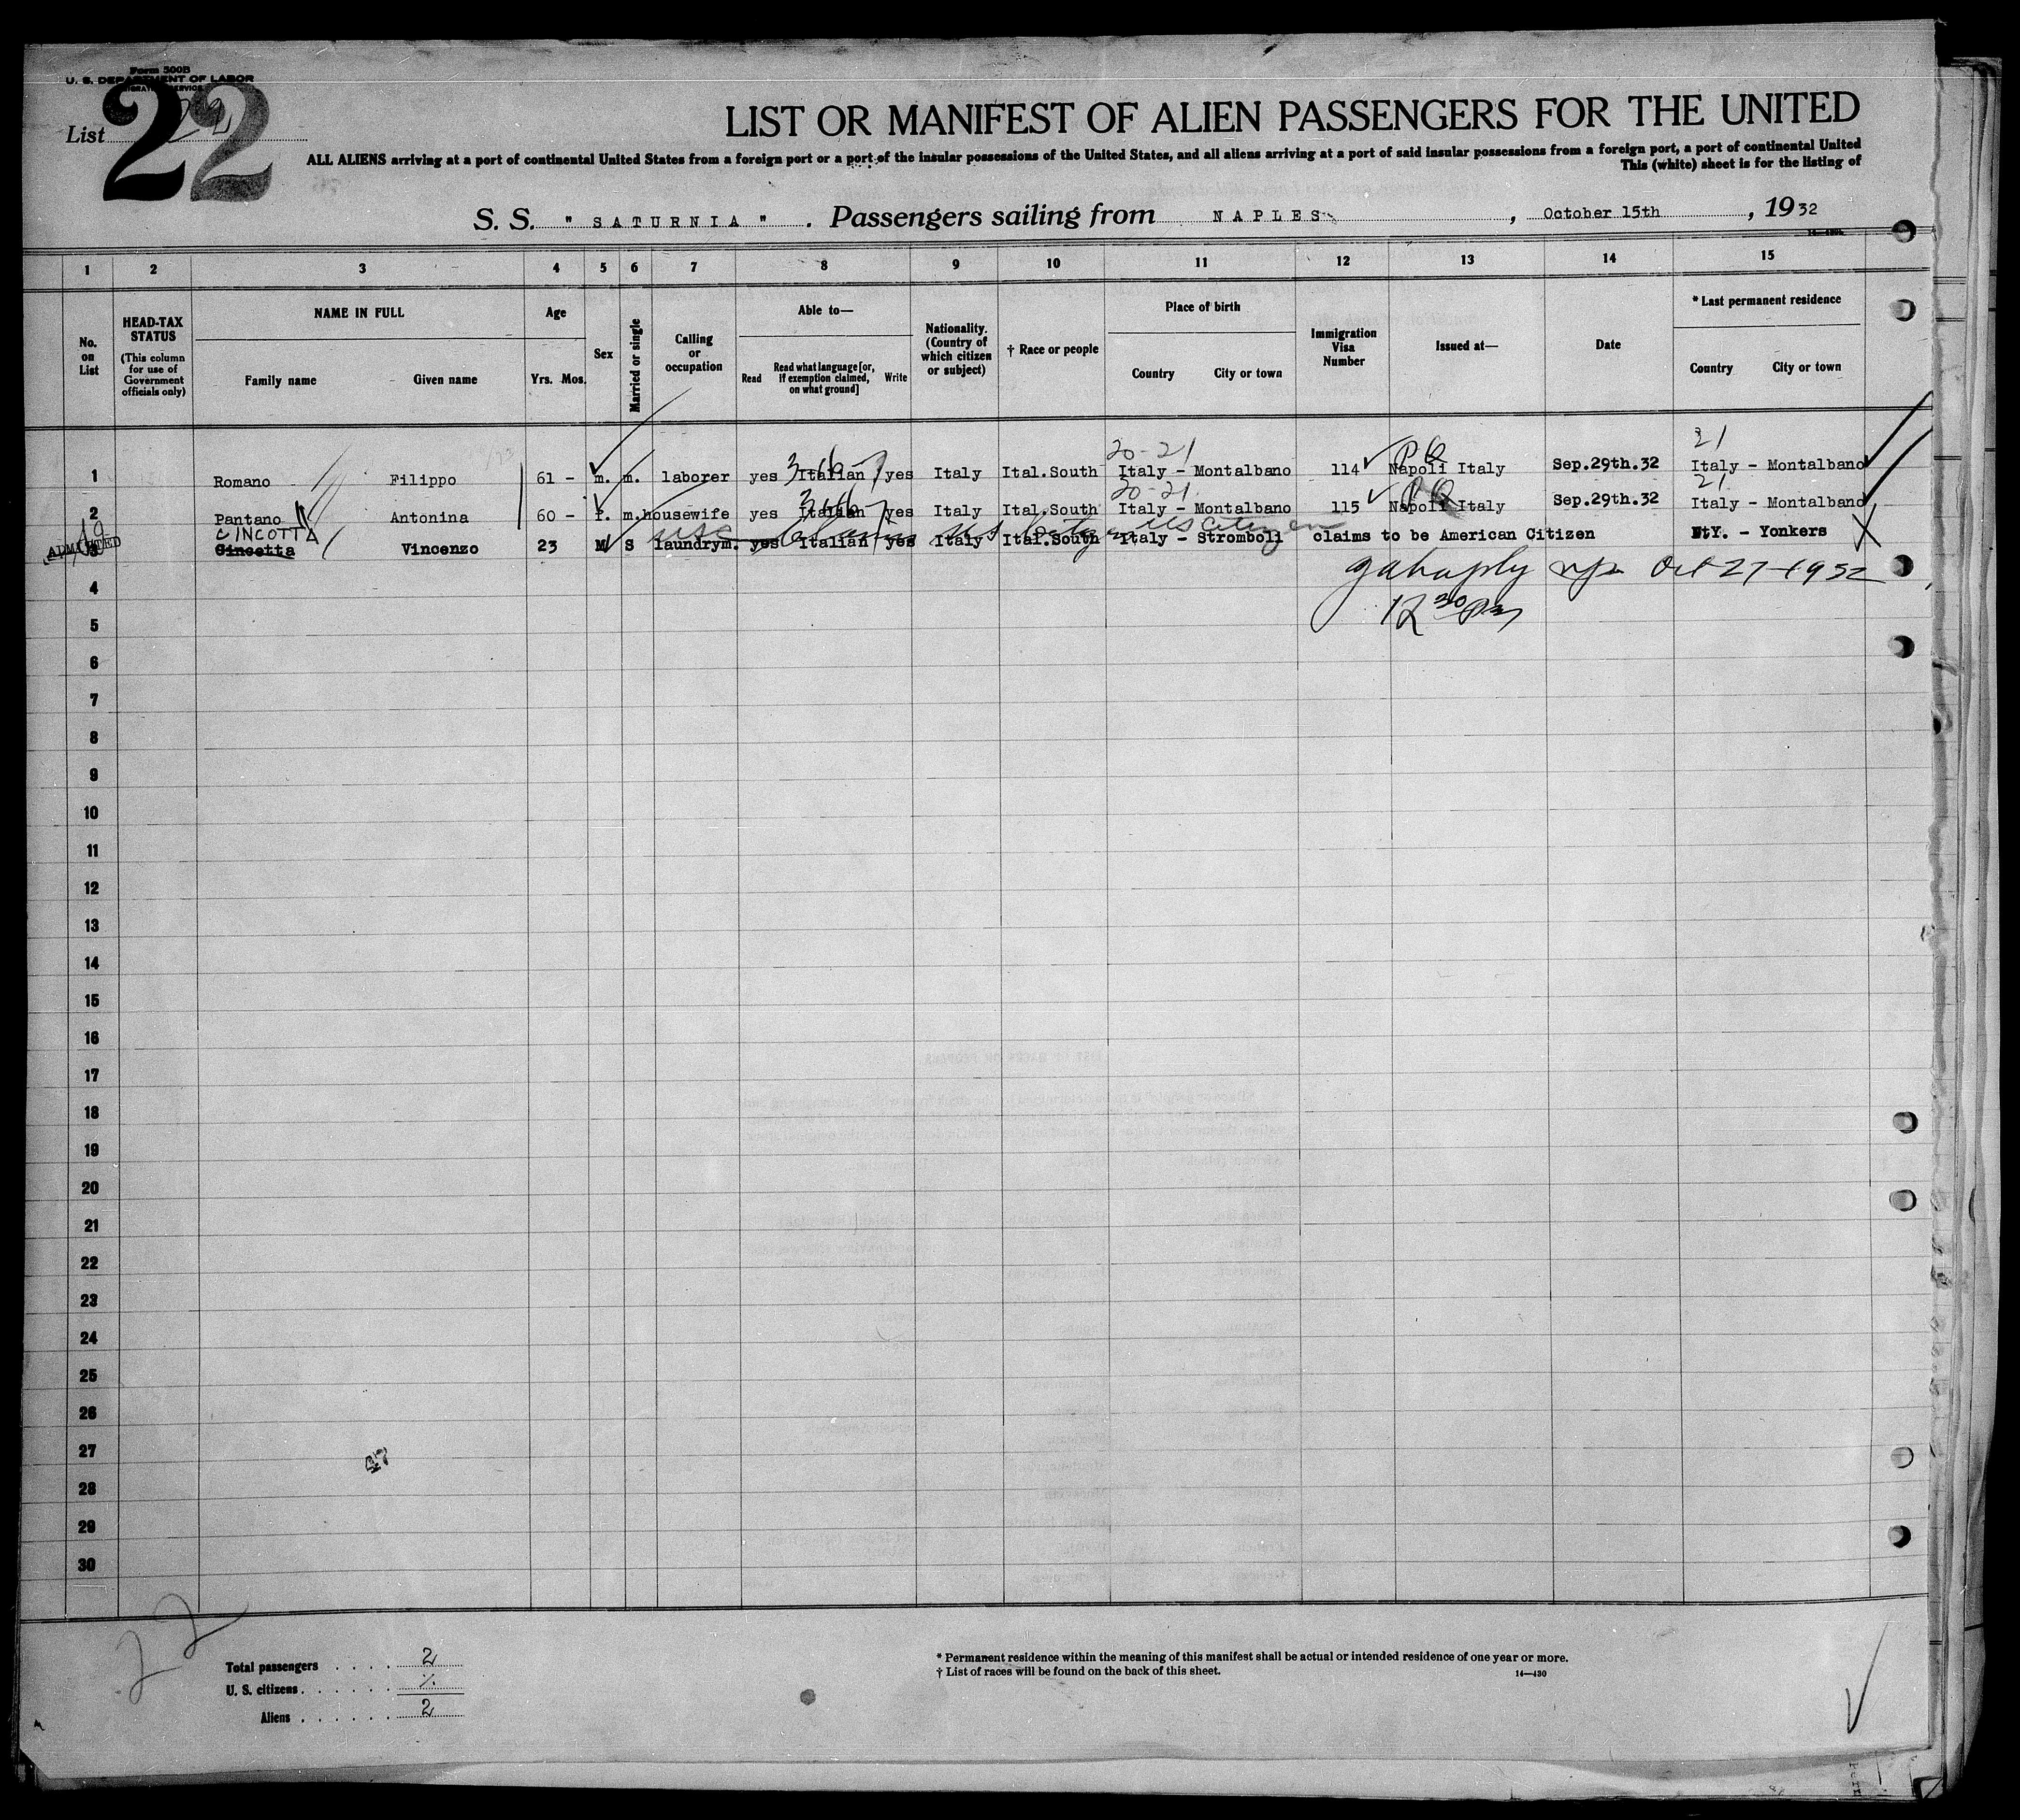 Form 500B
U. S. DEPARTMENT OF LABOR
List 22
22
LIST OR MANIFEST OF ALIEN PASSENGERS FOR THE UNITED
ALL ALIENS arriving at a port of continental United States from a foreign port or a port of the insular possessions of the United States, and all aliens arriving at a port of said insular possessions from a foreign port, a port of continental United
This (white) sheet is for the listing of
S. S. " SATURNIA ". Passengers sailing from NAPLES, October 15th, 1932
1 2 3 4 5 6 7 8 9 10 11 12 13 14 15
No. on List
HEAD-TAX STATUS (This column for use of Government officials only)
NAME IN FULL
Family name Given name
Age
Yrs. Mos.
Sex
Married or single
Calling or occupation
Able to—
Read Read what language [or, if exemption claimed, on what ground] Write
Nationality. (Country of which citizen or subject)
† Race or people
Place of birth
Country City or town
Immigration Visa Number
Issued at—
Date
* Last permanent residence
Country City or town
20-21 P Q 21
1 Romano Filippo 61 - m. m. laborer yes Italian yes Italy Ital.South Italy - Montalbano 114 Napoli Italy Sep.29th.32 Italy - Montalbano
20-21 P Q 21
2 Pantano Antonina 60 - f. m. housewife yes Italian yes Italy Ital.South Italy - Montalbano 115 Napoli Italy Sep.29th.32 Italy - Montalbano
CINCOTTA US citizen
ADMITTED
3 Cincetta Vincenzo 23 M S laundrym. yes Italian yes Italy Ital.South Italy - Stromboli claims to be American Citizen N.Y. - Yonkers
Oct 27-1932
4
12 30 Pm
5
6
7
8
9
10
11
12
13
14
15
16
17
18
19
20
21
22
23
24
25
26
27
47
28
29
30
22
Total passengers . . . . 2
U. S. citizens . . . . . .
Aliens . . . . . . 2
* Permanent residence within the meaning of this manifest shall be actual or intended residence of one year or more.
† List of races will be found on the back of this sheet. 14—430